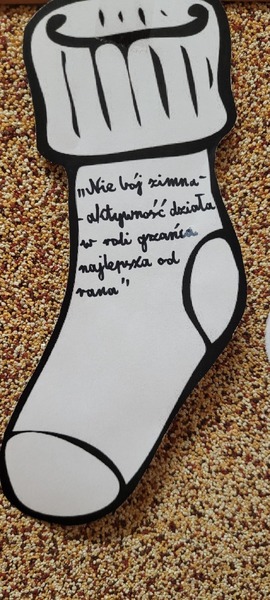 „Nie bój zimna-
- aktywność działa
w roli grzańca
najlepsza od
rana”